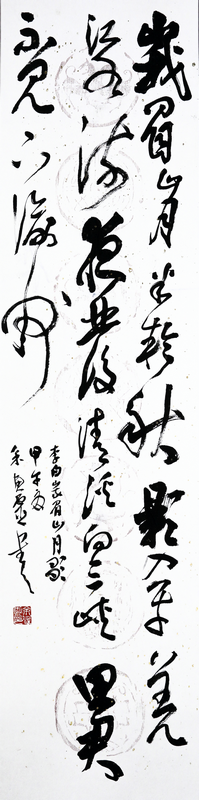 峩眉山月半輪秋影入平羌
江水流夜發清溪向三峽思君
不見下渝州
李白峩眉山月歌
甲午夏